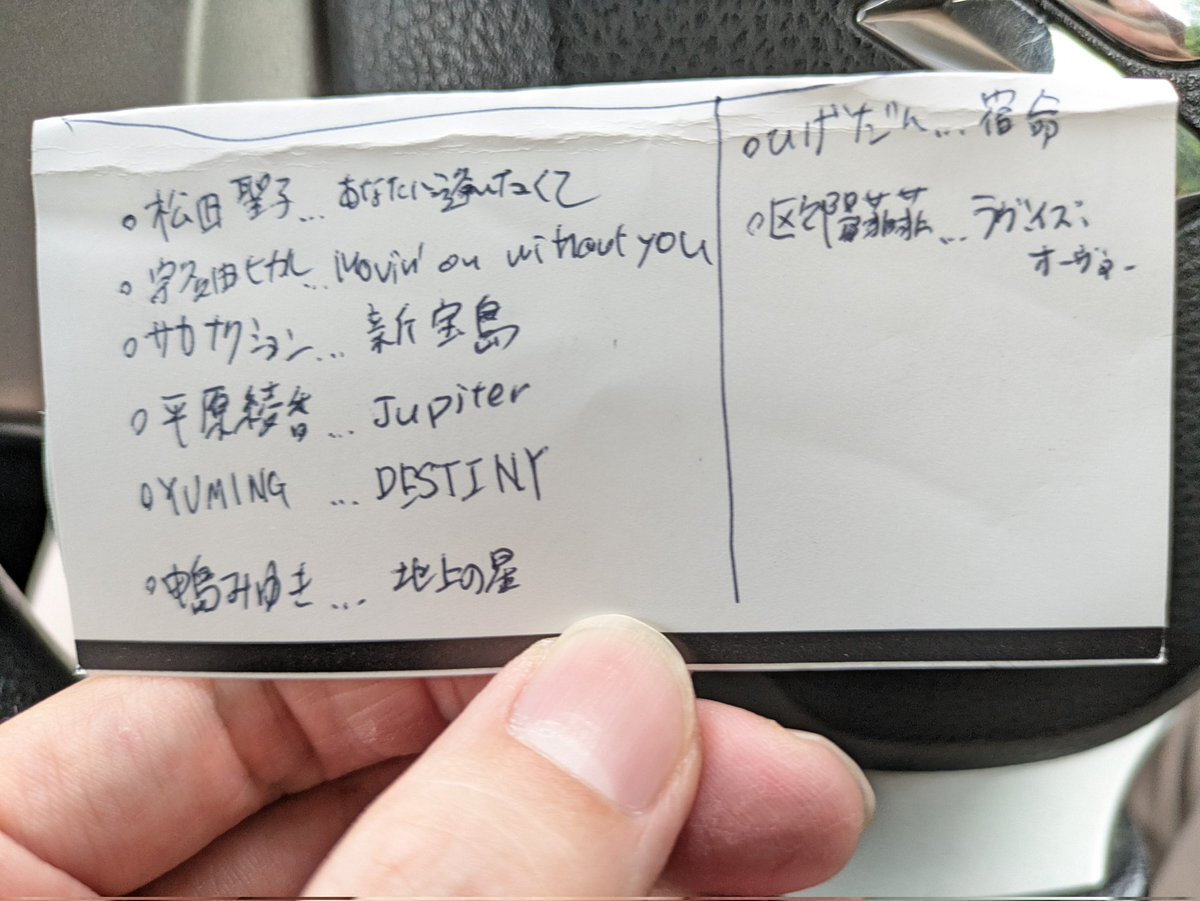 ○松田聖子...あなたに逢いたくて
○宇多田ヒカル...Movin' on without you
○サカナクション... 新宝島
○平原綾香... Jupiter
○YUMING ... DESTINY
○中島みゆき... 地上の星
○ひげだん... 宿命
○欧陽菲菲... ラヴ・イズ・
オーヴァー